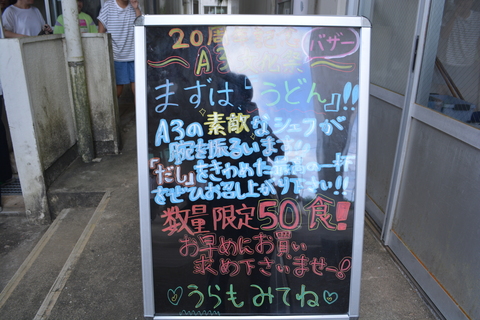 20周
バザー
A3
まずは『うどん』!!
A3の素敵なシェフが
腕を振るいます
「だし」をきわれた一杯
をぜひお召し上がり下さい!!
数量限定50食!
お早めにお買い
求め下さいませー!
うらもみてね